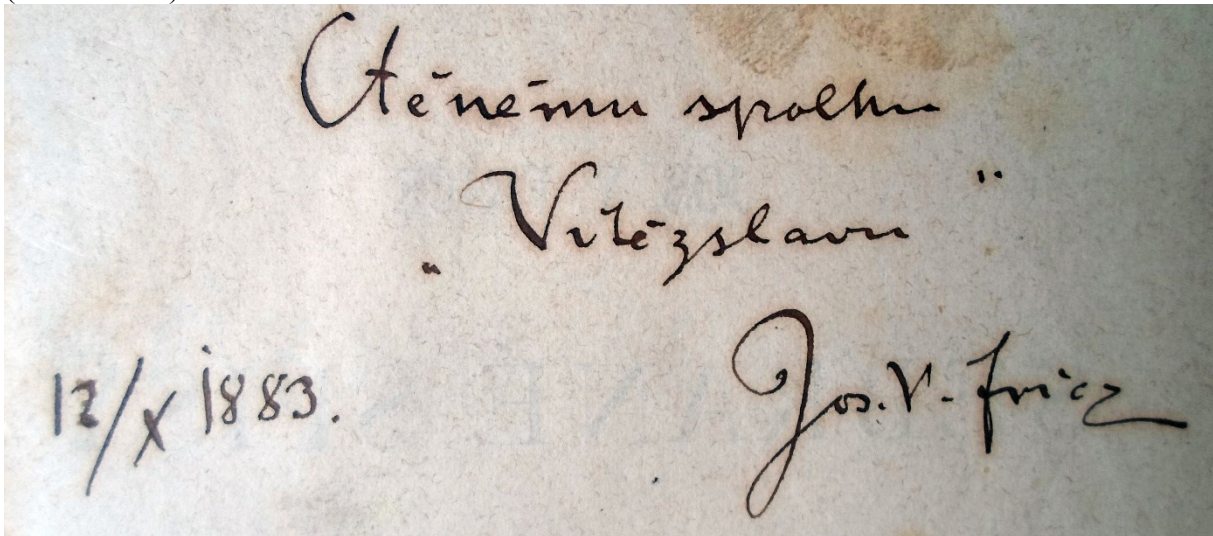 Ctěnému spolku
„Vítězslavu"
12/X 1883.
Jos. V. Fricz